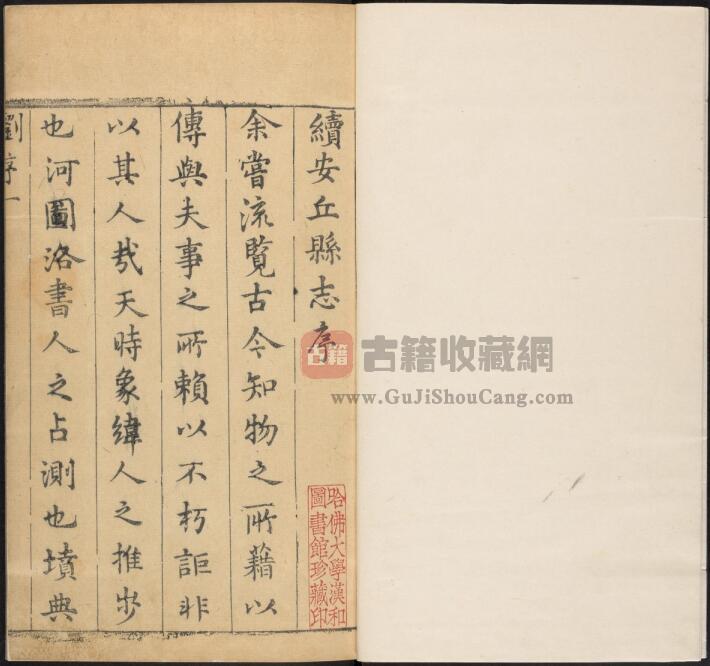 續安丘縣志序
余嘗流覧古今知物之所藉以
傳與夫事之所賴以不朽詎非
以其人哉天時象緯人之推步
也河圖洛書人之占測也墳典
劉序一
哈佛大學漢和
圖書館珍藏印
古籍
古籍收藏網
www.GuJiShouCang.com